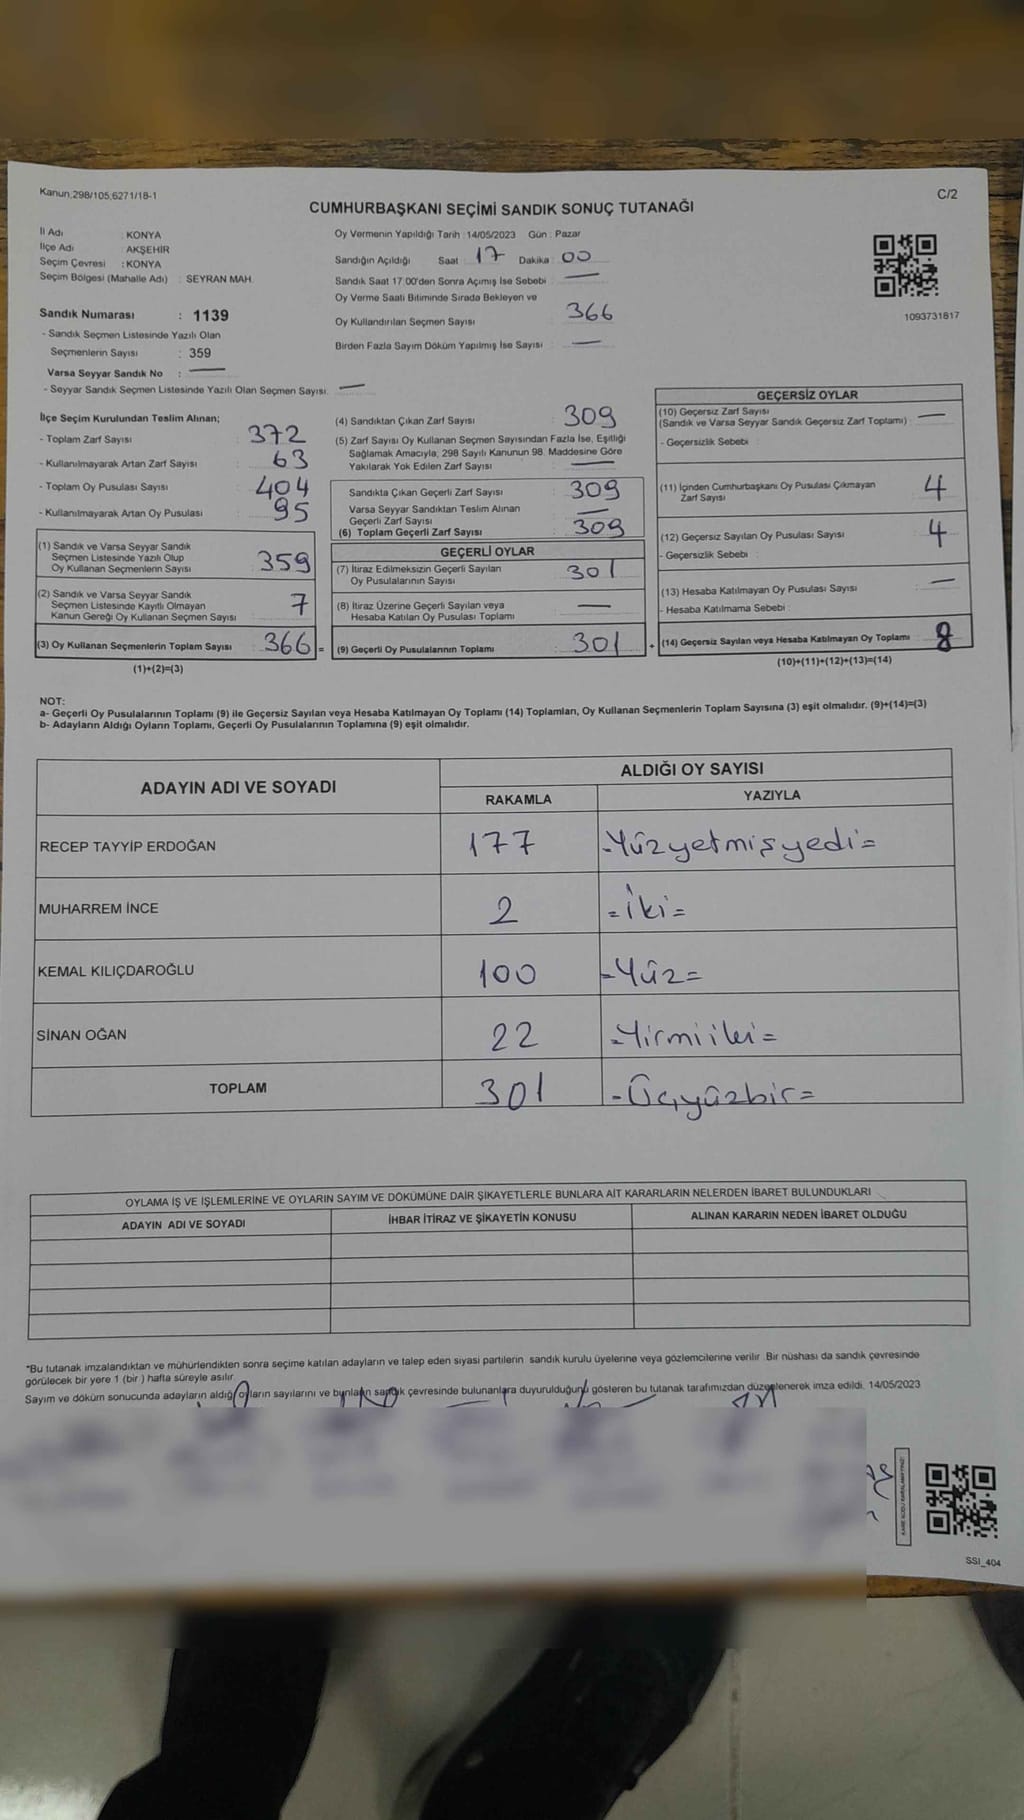 Kanun,298/105,6271/18-1
C/2
CUMHURBAŞKANI SEÇİMİ SANDIK SONUÇ TUTANAĞI
İl Adı : KONYA
İlçe Adı : AKŞEHİR
Seçim Çevresi : KONYA
Seçim Bölgesi (Mahalle Adı) : SEYRAN MAH.
Sandık Numarası : 1139
- Sandık Seçmen Listesinde Yazılı Olan
Seçmenlerin Sayısı : 359
Varsa Seyyar Sandık No : —
- Seyyar Sandık Seçmen Listesinde Yazılı Olan Seçmen Sayısı: —
Oy Vermenin Yapıldığı Tarih : 14/05/2023 Gün : Pazar
Sandığın Açıldığı Saat : 17 Dakika : 00
Sandık Saat 17:00'den Sonra Açımış İse Sebebi : —
Oy Verme Saati Bitiminde Sırada Bekleyen ve
Oy Kullandırılan Seçmen Sayısı : 366
Birden Fazla Sayım Döküm Yapılmış İse Sayısı : —
1093731817
İlçe Seçim Kurulundan Teslim Alınan;
- Toplam Zarf Sayısı : 372
- Kullanılmayarak Artan Zarf Sayısı : 63
- Toplam Oy Pusulası Sayısı : 404
- Kullanılmayarak Artan Oy Pusulası : 95
(1) Sandık ve Varsa Seyyar Sandık
Seçmen Listesinde Yazılı Olup
Oy Kullanan Seçmenlerin Sayısı : 359
(2) Sandık ve Varsa Seyyar Sandık
Seçmen Listesinde Kayıtlı Olmayan
Kanun Gereği Oy Kullanan Seçmen Sayısı : 7
(3) Oy Kullanan Seçmenlerin Toplam Sayısı : 366 =
(1)+(2)=(3)
(4) Sandıktan Çıkan Zarf Sayısı : 309
(5) Zarf Sayısı Oy Kullanan Seçmen Sayısından Fazla İse, Eşitliği
Sağlamak Amacıyla, 298 Sayılı Kanunun 98. Maddesine Göre
Yakılarak Yok Edilen Zarf Sayısı : —
Sandıkta Çıkan Geçerli Zarf Sayısı : 309
Varsa Seyyar Sandıktan Teslim Alınan
Geçerli Zarf Sayısı : —
(6) Toplam Geçerli Zarf Sayısı : 309
GEÇERLİ OYLAR
(7) İtiraz Edilmeksizin Geçerli Sayılan
Oy Pusulalarının Sayısı : 301
(8) İtiraz Üzerine Geçerli Sayılan veya
Hesaba Katılan Oy Pusulası Toplamı : —
(9) Geçerli Oy Pusulalarının Toplamı : 301 +
GEÇERSİZ OYLAR
(10) Geçersiz Zarf Sayısı
(Sandık ve Varsa Seyyar Sandık Geçersiz Zarf Toplamı) : —
- Geçersizlik Sebebi :
(11) İçinden Cumhurbaşkanı Oy Pusulası Çıkmayan
Zarf Sayısı : 4
(12) Geçersiz Sayılan Oy Pusulası Sayısı : 4
- Geçersizlik Sebebi :
(13) Hesaba Katılmayan Oy Pusulası Sayısı : —
- Hesaba Katılmama Sebebi :
(14) Geçersiz Sayılan veya Hesaba Katılmayan Oy Toplamı : 8
(10)+(11)+(12)+(13)=(14)
NOT:
a- Geçerli Oy Pusulalarının Toplamı (9) ile Geçersiz Sayılan veya Hesaba Katılmayan Oy Toplamı (14) Toplamları, Oy Kullanan Seçmenlerin Toplam Sayısına (3) eşit olmalıdır. (9)+(14)=(3)
b- Adayların Aldığı Oyların Toplamı, Geçerli Oy Pusulalarının Toplamına (9) eşit olmalıdır.
ADAYIN ADI VE SOYADI ALDIĞI OY SAYISI
RAKAMLA YAZIYLA
RECEP TAYYİP ERDOĞAN 177 =Yüzyetmişyedi=
MUHARREM İNCE 2 =İki=
KEMAL KILIÇDAROĞLU 100 =Yüz=
SİNAN OĞAN 22 =Yirmiiki=
TOPLAM 301 =Üçyüzbir=
OYLAMA İŞ VE İŞLEMLERİNE VE OYLARIN SAYIM VE DÖKÜMÜNE DAİR ŞİKAYETLERLE BUNLARA AİT KARARLARIN NELERDEN İBARET BULUNDUKLARI
ADAYIN ADI VE SOYADI İHBAR İTİRAZ VE ŞİKAYETİN KONUSU ALINAN KARARIN NEDEN İBARET OLDUĞU
*Bu tutanak imzalandıktan ve mühürlendikten sonra seçime katılan adayların ve talep eden siyasi partilerin sandık kurulu üyelerine veya gözlemcilerine verilir. Bir nüshası da sandık çevresinde
görülecek bir yere 1 (bir ) hafta süreyle asılır.
Sayım ve döküm sonucunda adayların aldığı oyların sayılarını ve bunların sandık çevresinde bulunanlara duyurulduğunu gösteren bu tutanak tarafımızdan düzenlenerek imza edildi. 14/05/2023
SSI_404